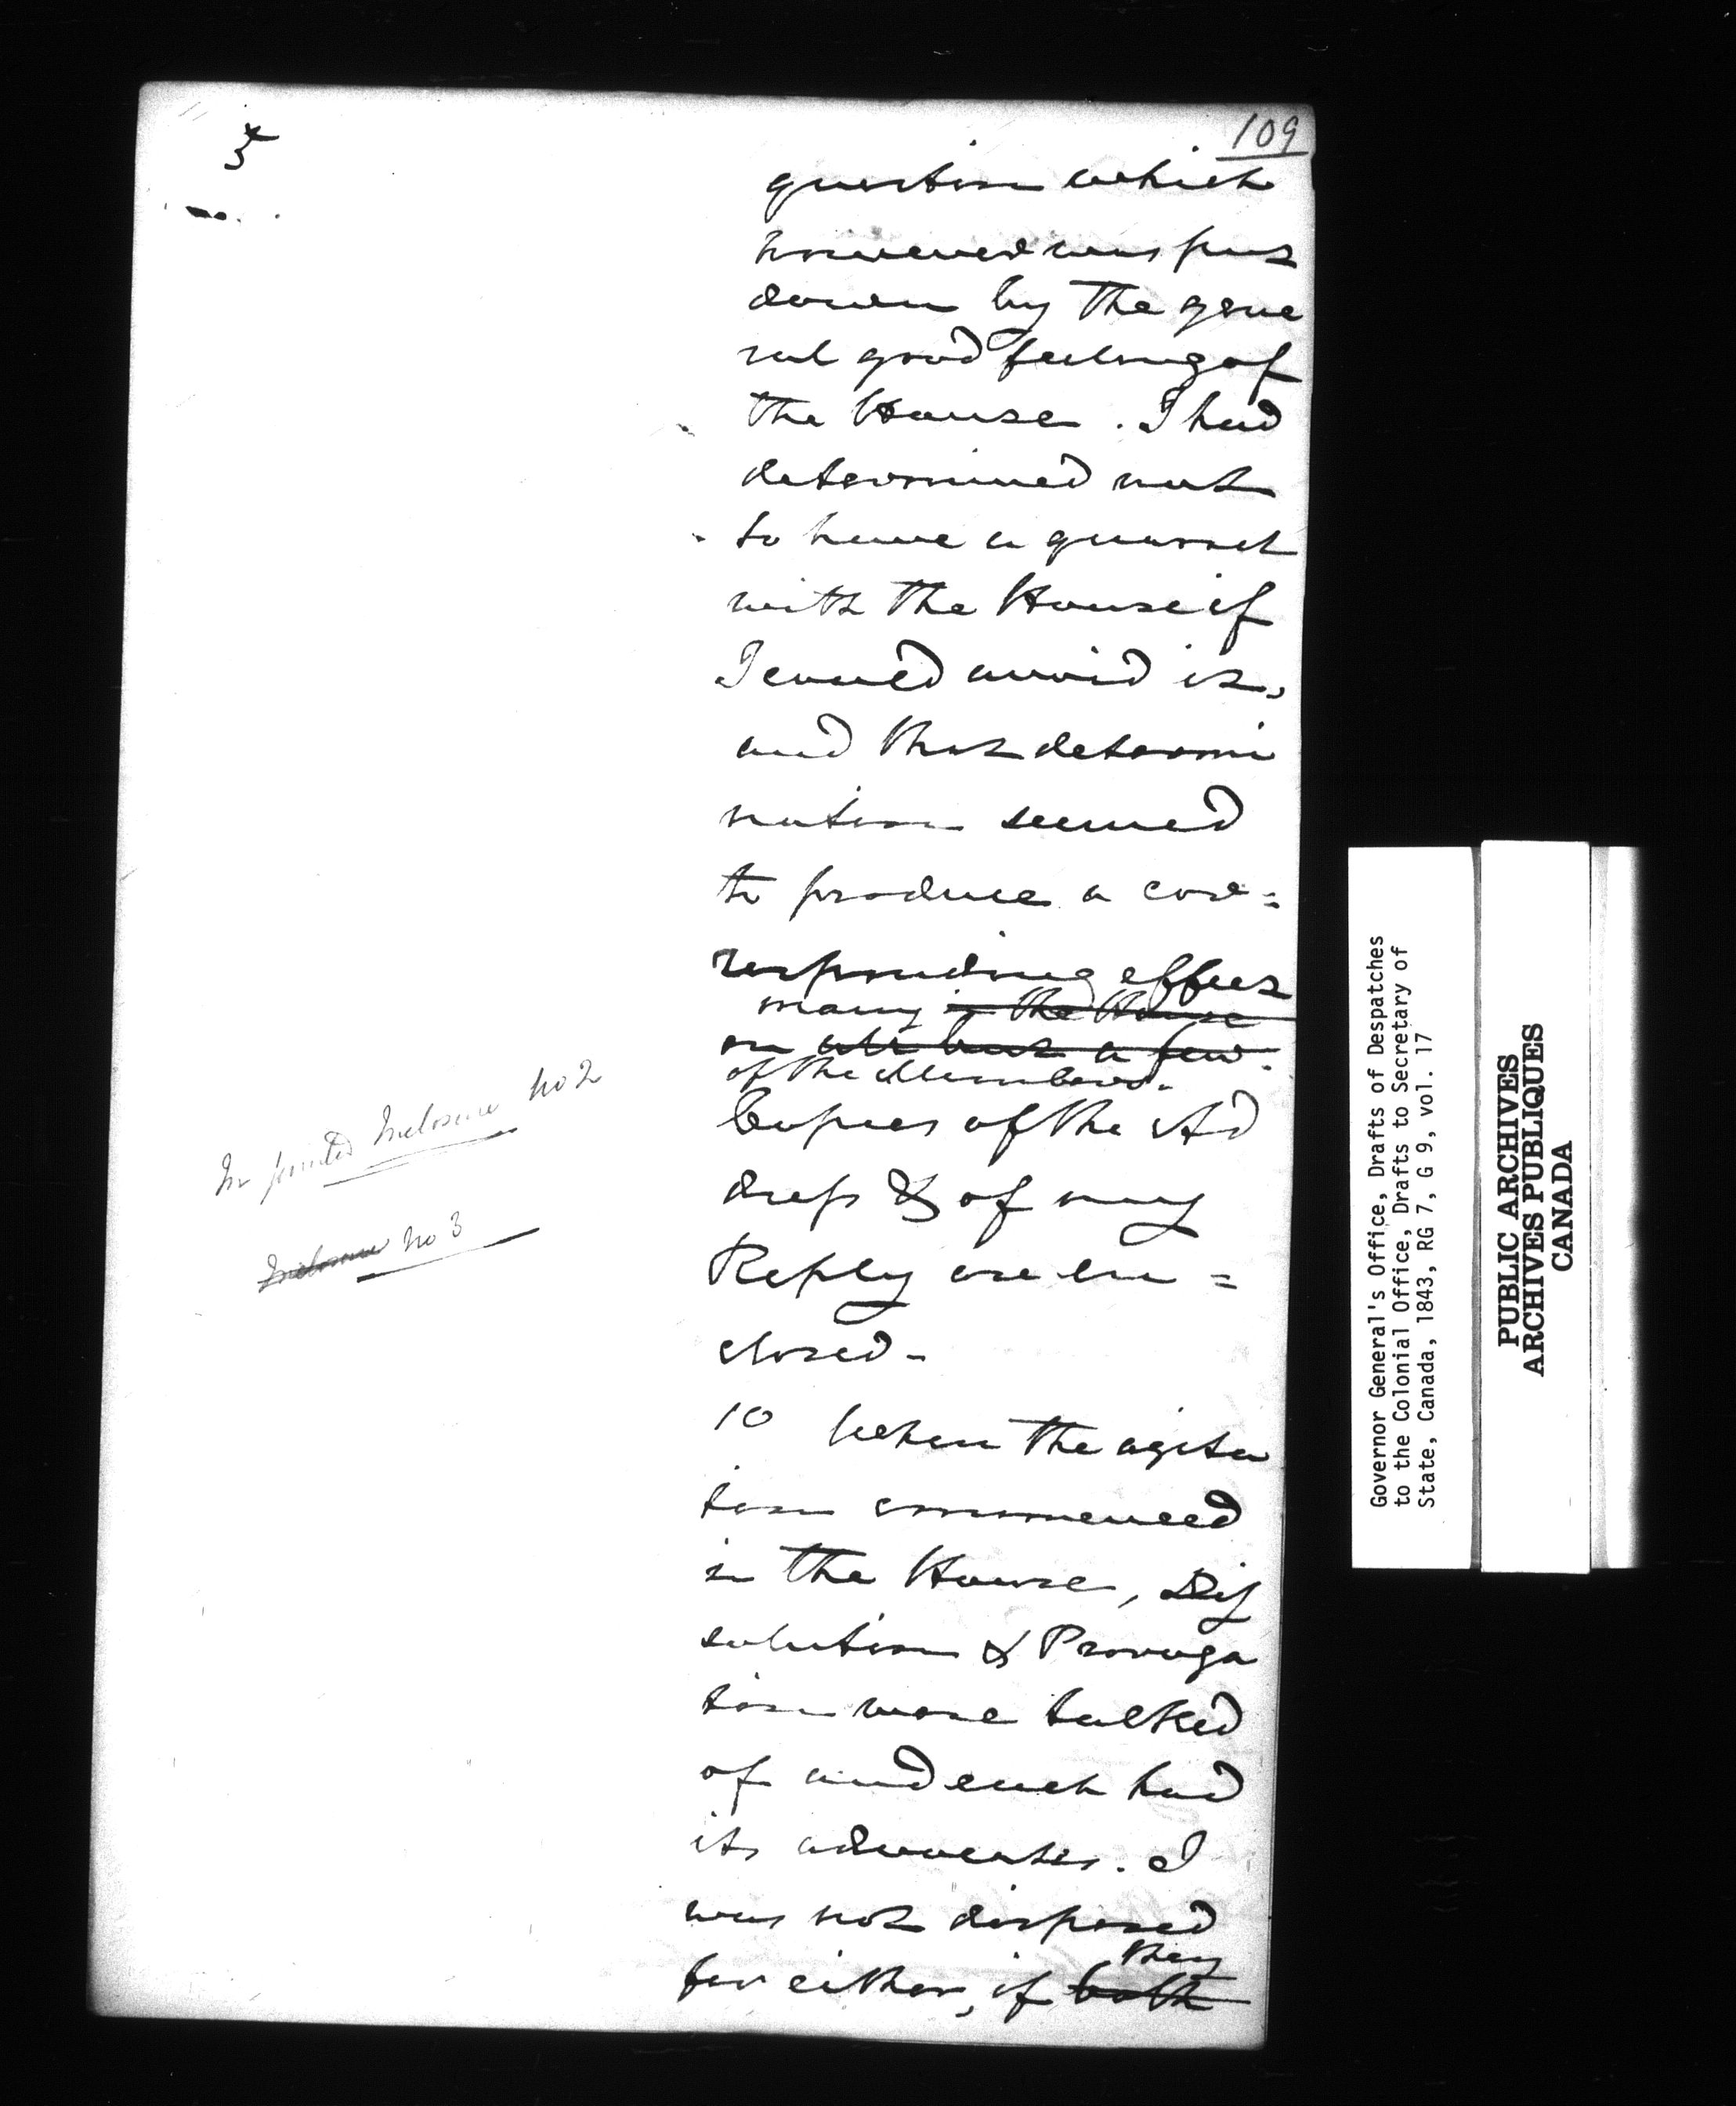 5
109
question which
however was put
down by the gene
ral good feeling of
the House. I had
determined not
to have a quarrel
with the House if
I could avoid it,
and that determi
nation seemed
to produce a cor=
responding effect
many in the House
on all but a few.
of the Members.
Copies of the Ad
dress & of my
Reply are en=
closed-
In printed Inclosure No 2
Inclosure No 3
10 When the agita
tion commenced
in the House, Dis
solution & Proroga
tion were talked
of and each had
its advocates. I
was not disposed
they
for either, if both
Governor General's Office, Drafts of Despatches
to the Colonial Office, Drafts to Secretary of
State, Canada, 1843, RG 7, G 9, vol. 17
PUBLIC ARCHIVES
ARCHIVES PUBLIQUES
CANADA